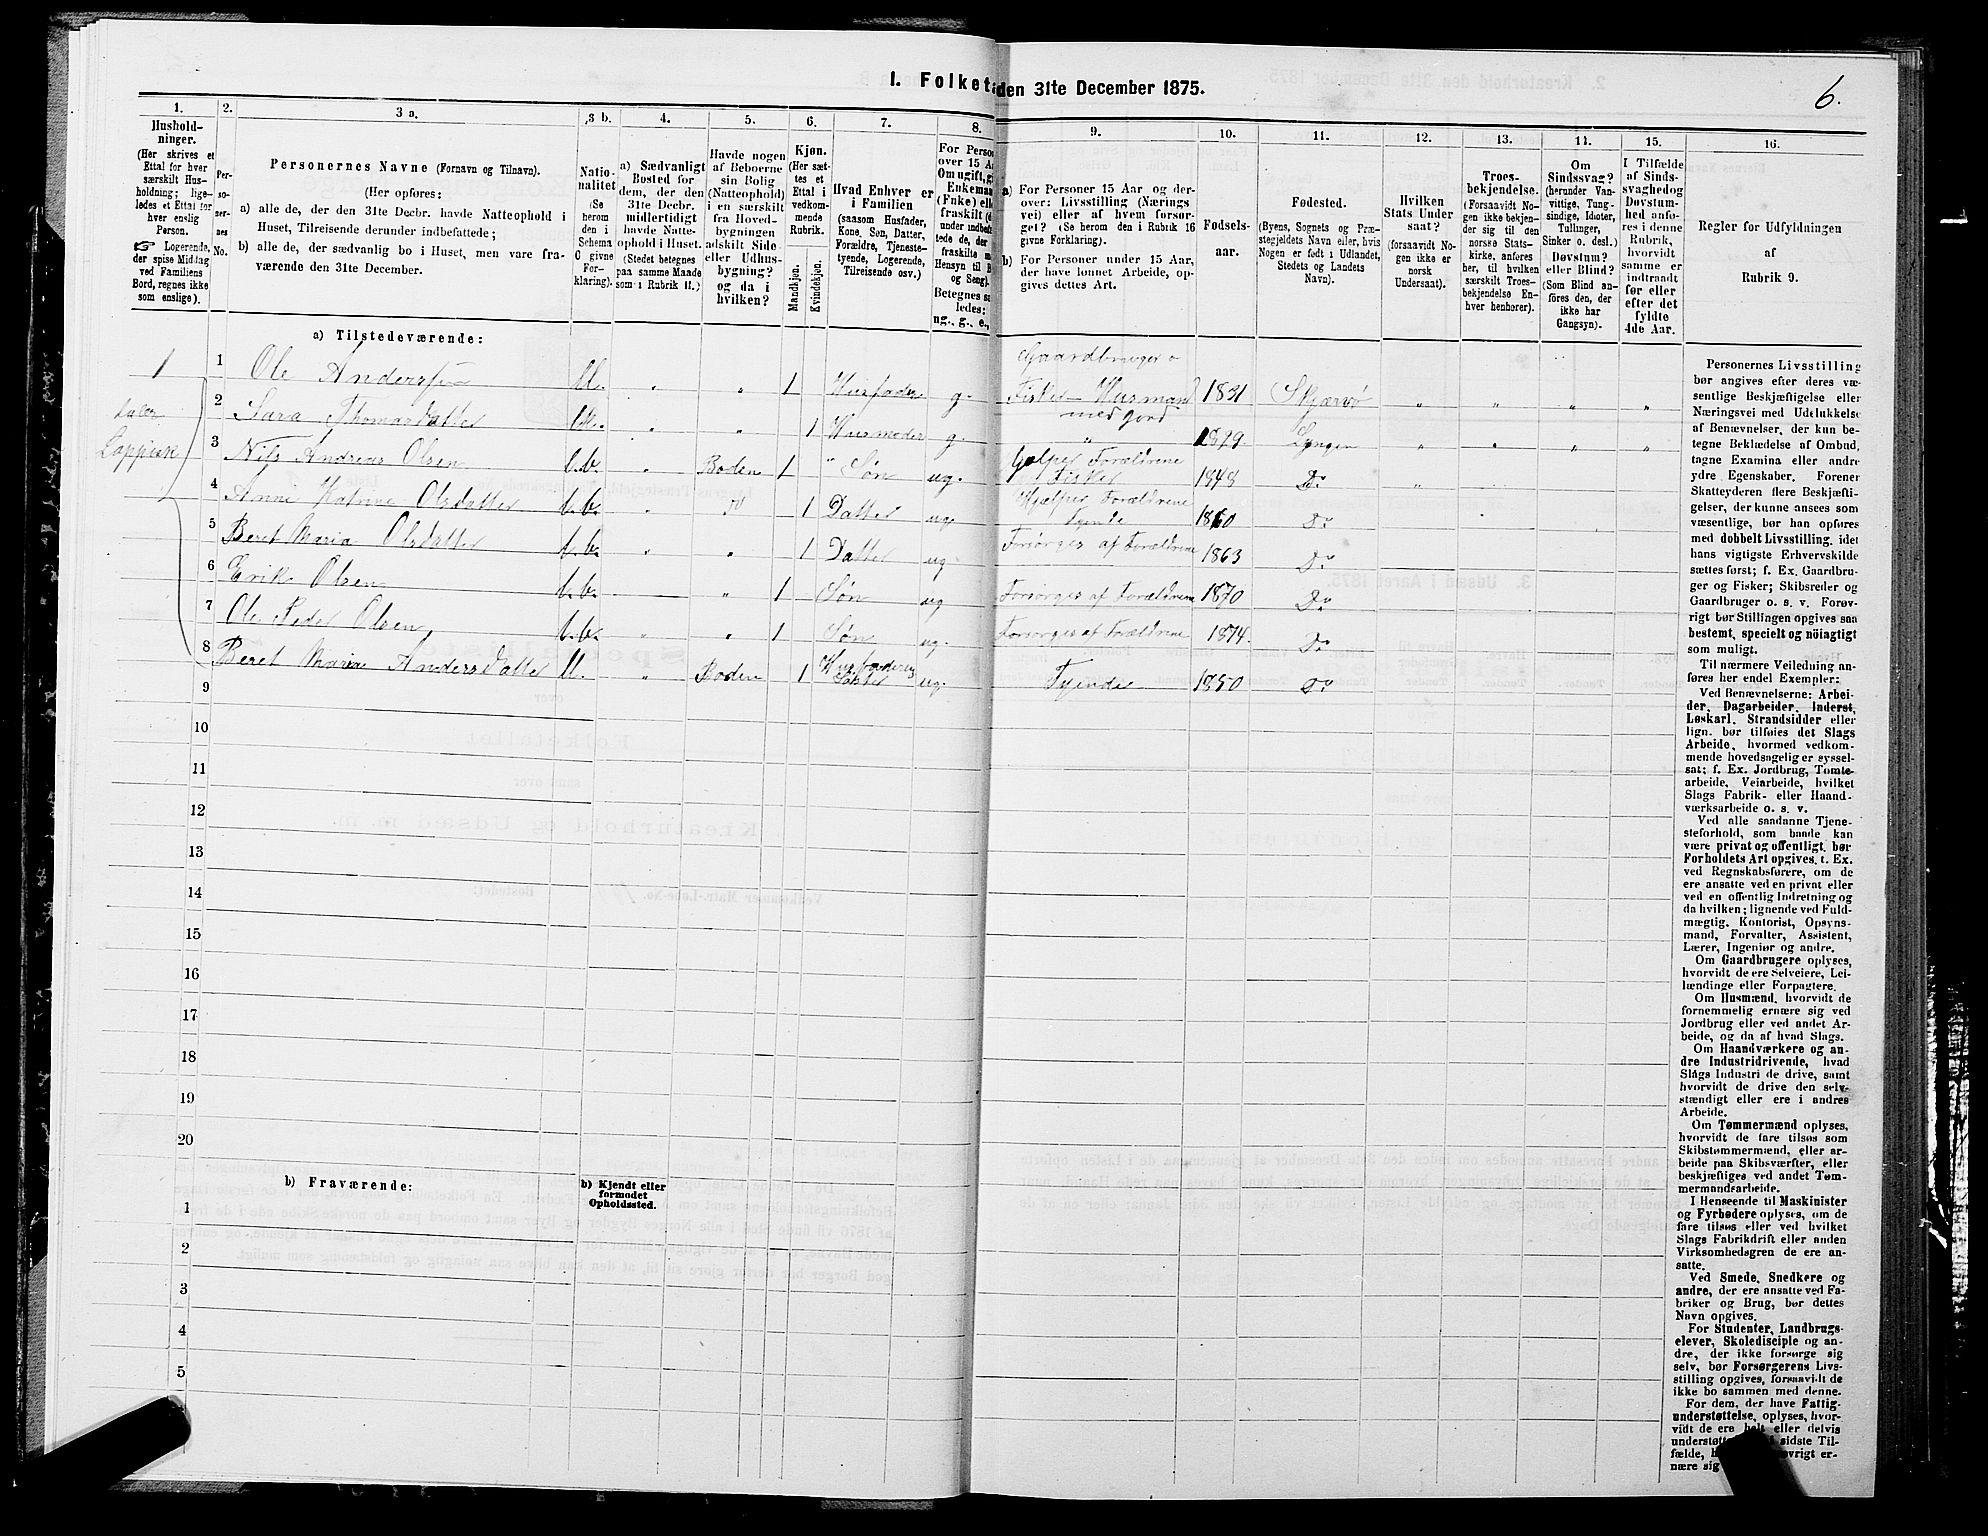 6.
I. Folket
den 31te December 1875.
1.
Hushold-
ninger.
(Her skrives et
Ettal for hver
særskilt Hus-
holdning; lige-
ledes et Ettal for
hver enslig
Person.
☞ Logerende,
der spise Middag
ved Familiens
Bord, regnes ikke
som enslige).
2.
Per-
so-
ner-
nes
No.
3 a.
Personernes Navne (Fornavn og Tilnavn).
(Her opføres:
a) alle de, der den 31te Decbr. havde Natteophold i
Huset, Tilreisende derunder indbefattede;
b) alle de, der sædvanlig bo i Huset, men vare fra-
værende den 31te December.
3 b.
Natio-
nalitet
(Se
herom
den i
Schema
C givne
For-
klaring).
4.
a) Sædvanligt
Bosted for
dem, der den
31te Decbr.
midlertidigt
havde Natte-
ophold i Huset.
(Stedet betegnes
paa samme Maade
som i Rubrik II.)
5.
Havde nogen
af Beboerne
sin Bolig
(Natteophold)
i en særskilt
fra Hoved-
bygningen
adskilt Side-
eller Udhus-
bygning?
og da i
hvilken?
6.
Kjøn.
(Her sæt-
tes et
Ettal i
vedkom-
mende
Rubrik.
Mandkjøn.
Kvindekjøn.
7.
Hvad Enhver er
i Familien
(saasom Husfader,
Kone, Søn, Datter,
Forældre, Tjeneste-
tyende, Logerende,
Tilreisende osv.)
8.
For Person
over 15 Aa
Om ugift, g
Enkeman
(Enke) elle
fraskilt (d
under indbefat
tede de, der
fraskilte m
Hensyn til B
og Seng).
Betegnes sa
ledes:
ug., g., e.,
9.
a) For Personer 15 Aar og der-
over: Livsstilling (Nærings
vei) eller af hvem forsør-
get? (Se herom den i Rubrik 16
givne Forklaring).
b) For Personer under 15 Aar,
der have lønnet Arbeide, op-
gives dettes Art.
10.
Fødsels-
aar.
11.
Fødested.
(Byens, Sognets og Præ-
stegjeldets Navn eller, hvis
Nogen er født i Udlandet,
Stedets og Landets
Navn).
12.
Hvilken
Stats Under
saat?
(forsaavidt No-
gen ikke er
norsk
Undersaat).
13.
Troes-
bekjendelse.
(Forsaavidt No-
gen ikke bekjen-
der sig til den
norske Stats-
kirke, anføres
her, til hvilken
særskilt Troes-
bekjendelse En-
hver henhører).
14.
Om
Sindssvag?
(herunder Van-
vittige, Tung-
sindige, Idioter,
Tullinger,
Sinker o. desl.)
Døvstum?
eller Blind?
(Som Blind an-
føres den, der
ikke har
Gangsyn).
15.
I Tilfælde
af Sinds-
svaghed og
Døvstum-
hed anfø-
res i denne
Rubrik,
hvorvidt
samme er
indtraadt
før eller
efter det
fyldte
4de Aar.
16.
Regler for Udfyldningen
af
Rubrik 9.
a) Tilstedeværende:
1 1 Ole Anderssen " " 1 Husfader g. Gaardbruger o Fisker Husmand med Jord 1831 Skjærvø " " " "
2 Sara Thomasdatter " " 1 Husmoder g. " 1829. Lyngen " " " "
taler
Lappisk
3 Nils Andreas Olsen b.b. " Boden 1 Søn ug. Gjælper Forældrene Fisker 1848 Do "
4 Anne Katrine Olsdatter b.b. " 1 Datter ug. Hjælper Forældrene Tyende 1860 Do
5 Beret Maria Olsdatter b.b. " " 1 Datter ug. Forsørges af Forældrene 1863 Do
6 Erik Olsen b.b. " 1 Søn ug Forsørges af Forældrene 1870 Do
7 Ole Peder Olsen b.b. " " 1 Søn ug. Forsørges af Forældrene 1874. Do
8 Beret Maria Andersdatter " Boden 1 Husfaderens Søster ug. Tyende 1850 Do
9
10
11
12
13
14
15
16
17
18
19
20
b) Fraværende:
b) Kjendt eller
formodet
Opholdssted.
1
2
3
4
5
Personernes Livsstilling
bør angives efter deres væ-
sentlige Beskjæftigelse eller
Næringsvei med Udelukkelse
af Benævnelser, der kun be-
tegne Beklædelse af Ombud,
tagne Examina eller andre
ydre Egenskaber. Forener
Skatteyderen flere Beskjæfti-
gelser, der kunne ansees som
væsentlige, bør han opføres
med dobbelt Livsstilling, idet
hans vigtigste Erhvervskilde
sættes først; f. Ex. Gaardbru-
ger og Fisker; Skibsreder og
Gaardbruger o. s. v. Forøv-
rigt bør Stillingen opgives saa
bestemt, specielt og nøiagtigt
som muligt.
Til nærmere Veiledning an-
føres her endel Exempler:
Ved Benævnelserne: Arbei-
der, Dagarbeider, Inderst,
Løskarl, Strandsidder eller
lign. bør tilføies det Slags
Arbeide, hvormed vedkom-
mende hovedsagelig er syssel-
sat; f. Ex. Jordbrug, Tomte-
arbeide, Veiarbeide, hvilket
Slags Fabrik- eller Haand-
værksarbeide o. s. v.
Ved alle saadanne Tjene-
steforhold, som baade kan
være privat og offentligt, bør
Forholdets Art opgives, t. Ex.
ved Regnskabsførere, om de
ere ansatte ved en privat eller
ved en offentlig Indretning og
da hvilken; lignende ved Fuld-
mægtig, Kontorist, Opsyns-
mand, Forvalter, Assistent,
Lærer, Ingeniør og andre.
Om Gaardbrugere oplyses,
hvorvidt de ere Selveiere, Lei-
lændinge eller Forpagtere.
Om Husmænd, hvorvidt de
fornemmelig ernære sig ved
Jordbrug eller ved andet Ar-
beide, og da af hvad Slags.
Om Haandværkere og an-
dre Industridrivende, hvad
Slags Industri de drive, samt
hvorvidt de drive den selv-
stændigt eller ere i andres
Arbeide.
Om Tømmermænd oplyses,
hvorvidt de fare tilsøs som
Skibstømmermænd, eller ar-
beide paa Skibsværfter, eller
beskjæftiges ved andet Tøm-
mermandsarbeide.
I Henseende til Maskinister
og Fyrbødere oplyses, om de
fare tilsøs eller ved hvilket
Slags Fabrikdrift eller anden
Virksomhedsgren de ere an-
satte.
Ved Smede, Snedkere og
andre, der ere ansatte ved Fa-
briker og Brug, bør dettes
Navn opgives.
For Studenter, Landbrugs-
elever, Skoledisciple og an-
dre, der ikke forsørge sig
selv, bør Forsørgerens Livs-
stilling opgives, forsaavidt de
ikke bo sammen med denne.
For dem, der have Fattig-
understøttelse, oplyses, hvor-
vidt de ere helt eller delvis
understøtte sidste Til-
fælde, h øvrigt er-
nære sig